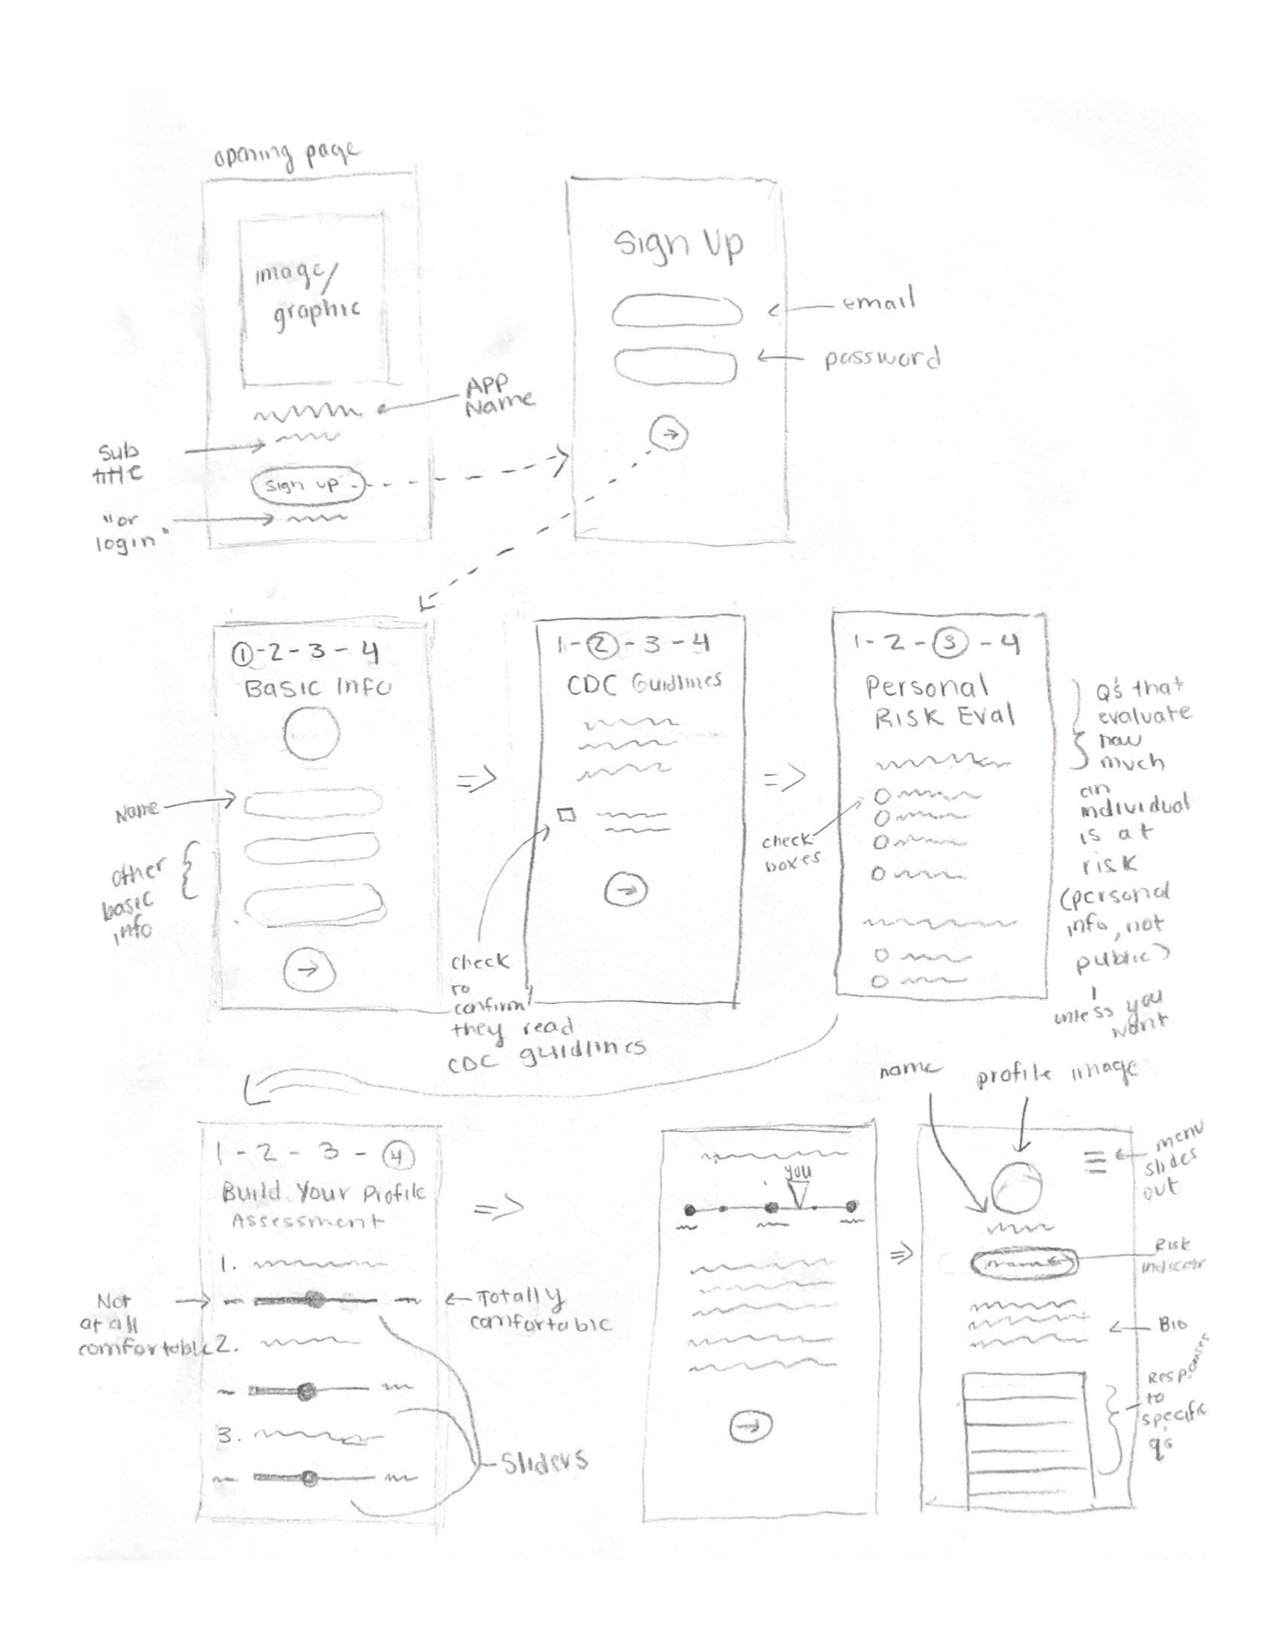 opening page
image/
graphic
APP
Name
Sub
title
Sign up
"or
login"
Sign Up
email
password
1-2-3-4
Basic Info
Name
other
basic
info
1-2-3-4
CDC Guidlines
check
to
confirm
they read
CDC guidlines
1-2-3-4
Personal
Risk Eval
check
boxes
Q's that
evaluate
how
much
an
individual
is at
risk
(personal
info, not
public)
unless you
want
1-2-3-4
Build Your Profile
Assessment
1.
Not
at all
comfortable
Totally
comfortable
2.
3.
Sliders
you
name
profile image
menu
slides
out
Risk
indicator
Bio
Responses
to
specific
q's